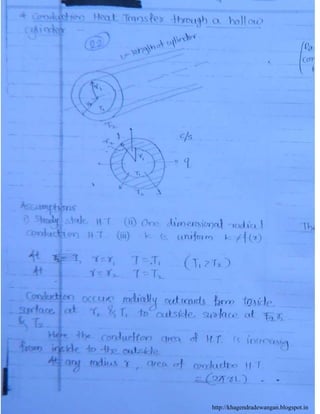 * Conduction Heat Transfer through a hollow
cylinder -
02
L → length of cylinder
r₁
r₂
T₂
T₁
r₁
r₂
c/s
q
Assumptions
i) Steady state H.T. (ii) One dimensional radial
conduction H.T. (iii) k is uniform k≠f(r)
At r=r₁ T=T₁ (T₁>T₂)
At r=r₂ T=T₂
Conduction occurs radially outwards from inside
surface at r₁ & T₁ to outside surface at r₂
& T₂.
Here the conduction area of H.T. is increasing
from inside to the outside
At any radius r, area of conduction H.T.
= (2πrL) . .
http://khagendradewangan.blogspot.in